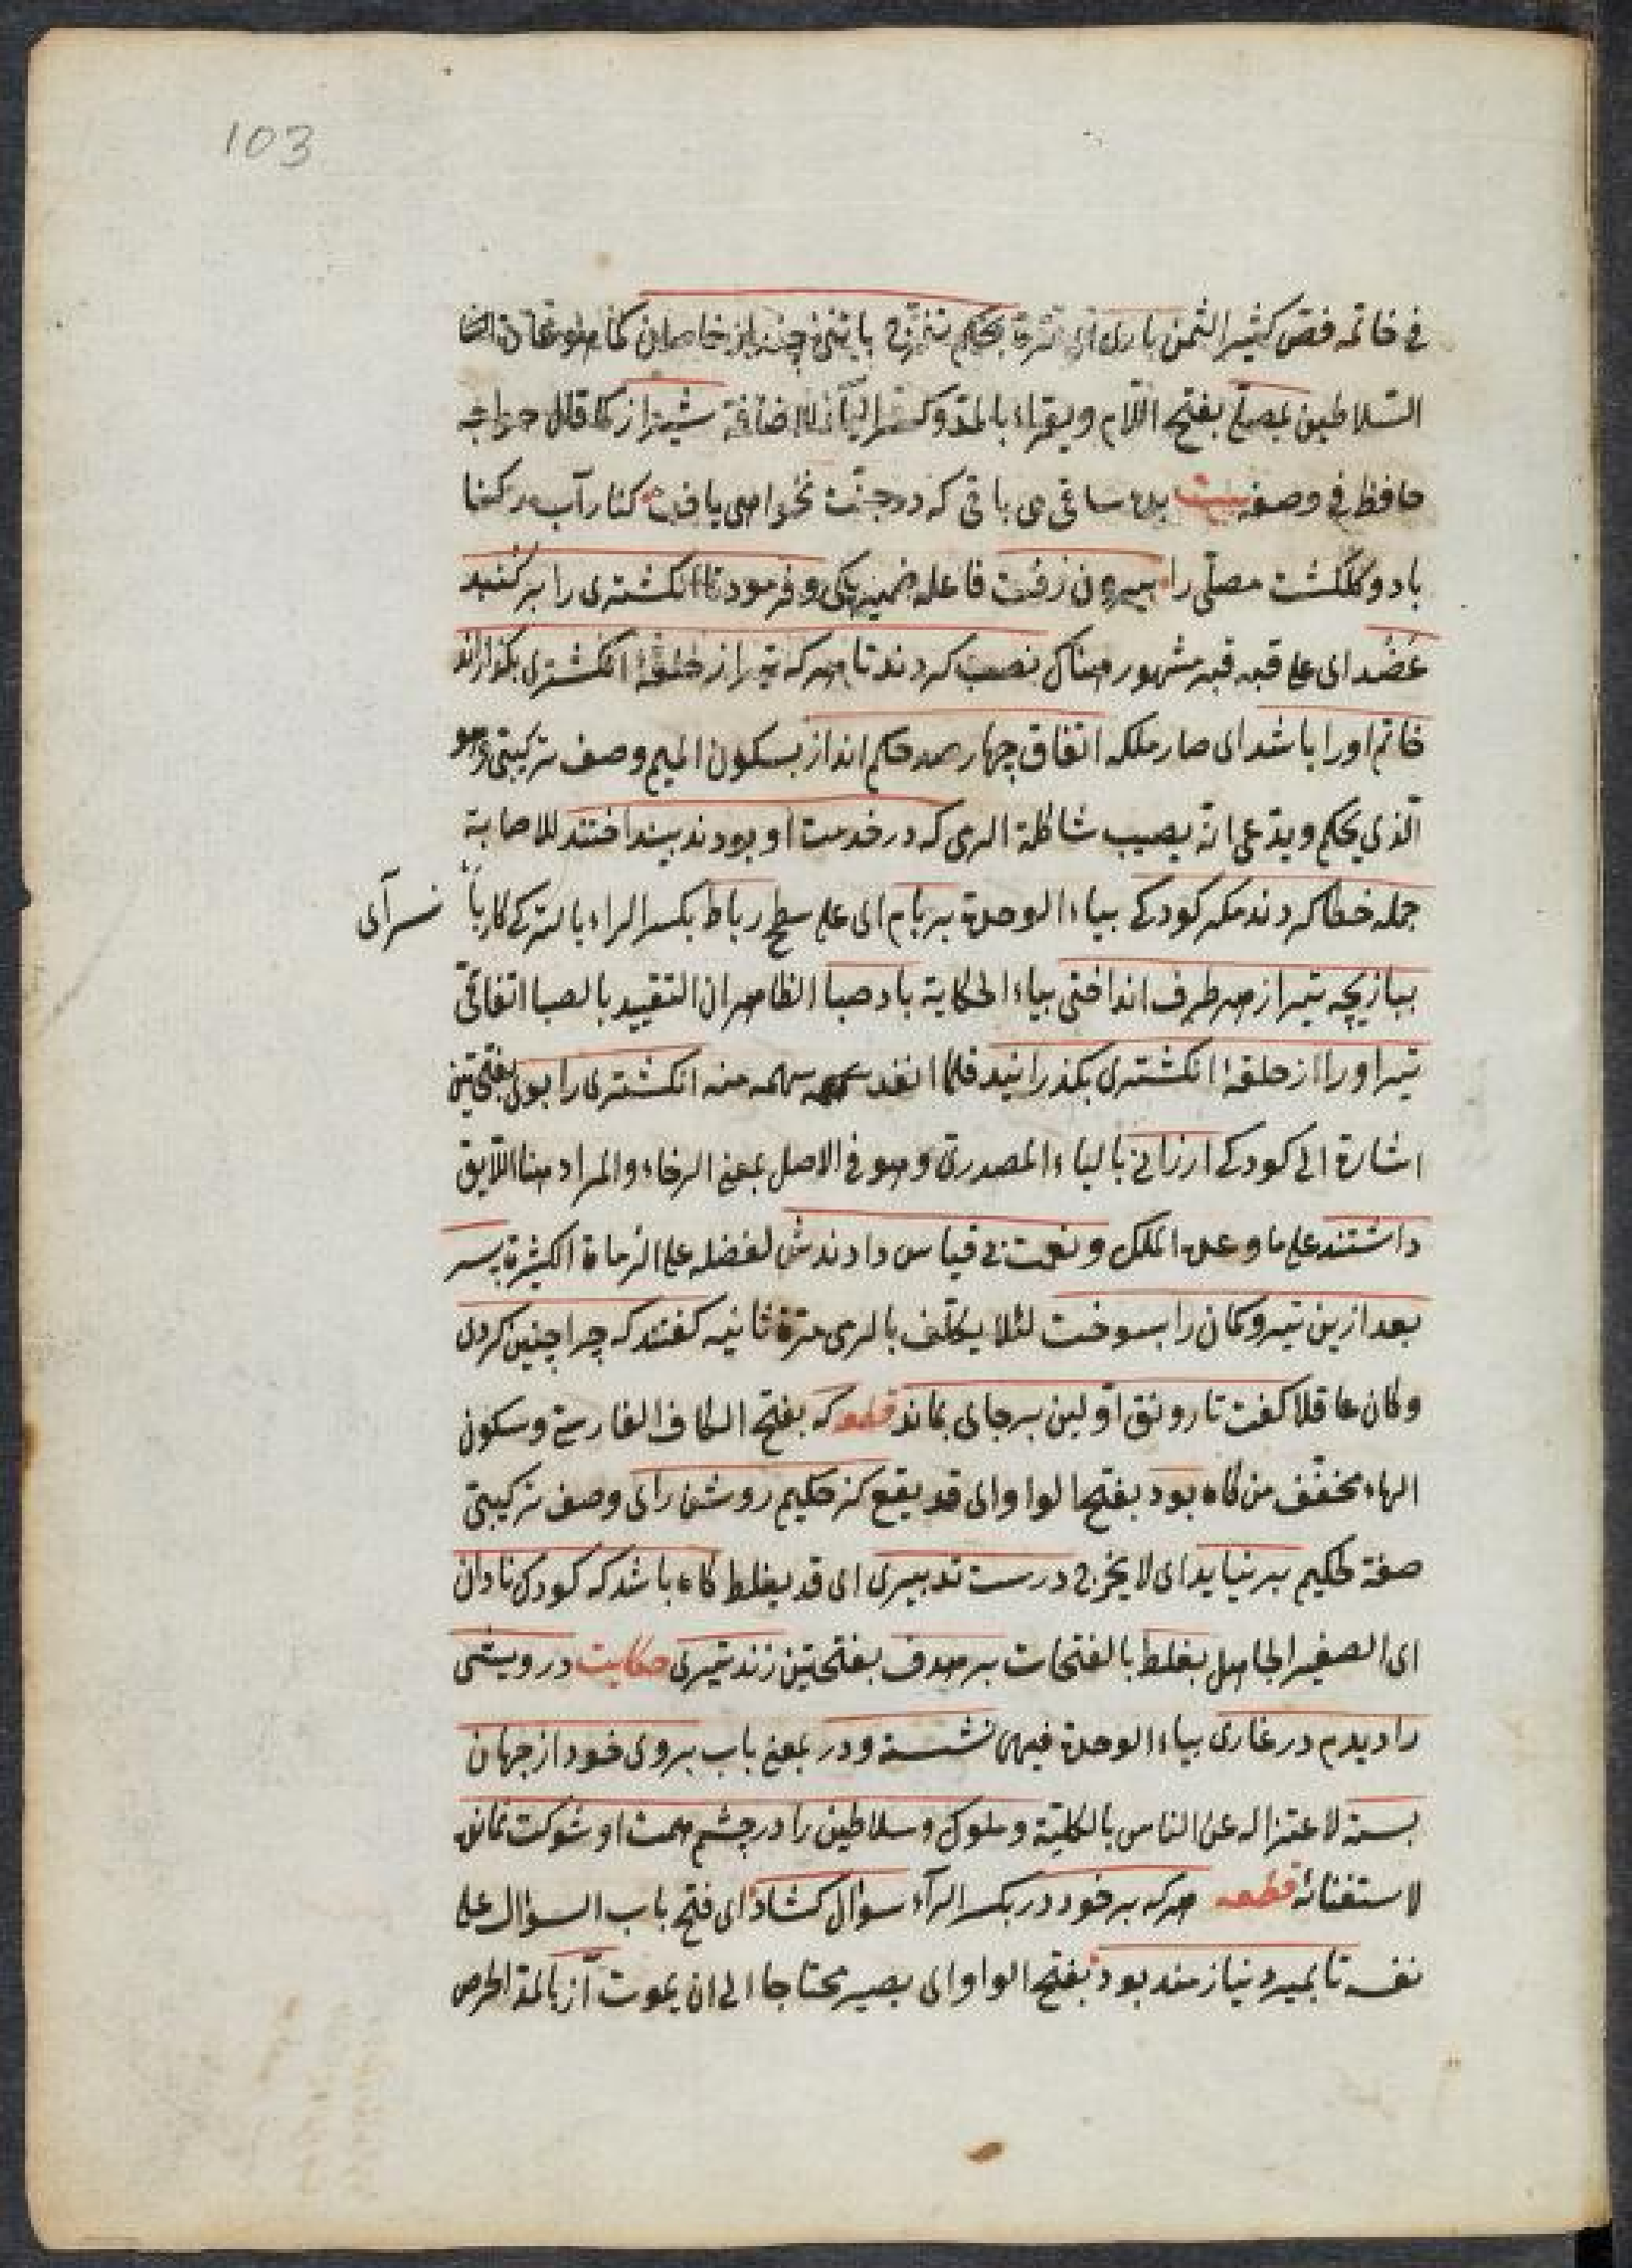 103
في خاتمه فصّ كثير الثمن باری ای مرّة بحكم تفرّج با تنی چند از خاصان كما هو عادة
السّلاطين بمصلّی بفتح اللّام ويقراء بالمدّ وكسر الياء للاضافة شيراز كما قال خواجه
حافظ في وصفه بيت بده ساقی می باقی كه در جنّت نخواهی يافت كنار آب ركنا
باد و كلكشت مصلّی را بيرون رفت فاعله ضمير ملك وفرمود تا انكشتری را بر كنبد
عَضُد ای علی قبه قبه مشهور هناك نصب كردند تا هر كه تير از حلقهٔ انكشتری بكذراند
خاتم او را باشد ای صار ملكه اتفاق چهار صد حكم انداز بسكون الميم وصف تركيبی وهو
الّذي يحكم ويدّعی انّه يصيب شاكلة الرمی كه در خدمت او بودند بينداختند للاصابة
جمله خطا كردند مكر كودكی بياء الوحدة بر بام ای علی سطح رباط بكسر الراء بالتركی كاربان سرای
ببازيچه تير از هر طرف انداختی بياء الحكاية باد صبا الظاهر ان التقييد بالصبا اتفاقیّ
تير او را از حلقهٔ انكشتری بكذرانيد فلما انفد سهمه منه انكشتری را بوی بفتحتين
اشارة الی كودكی ارزانی بالياء المصدريّ وهو في الاصل بمعنی الرخاء والمراد هنا اللّايق
داشتند علی ما وعده الملك ونعمت بی قياس دادندش لفضله علی الرماة الكثيرة پسر
بعد ازين تير وكمان را بسوخت لئلا يكلّف بالرمی مرّة ثانيه كفتند كه چرا چنين كردی
وكان عاقلا كفت تا رونق اوّلين بر جای بماند قطعه كه بفتح الكاف الفارسيّ وسكون
الهاء مخفّف من كاه بود بفتح الواو ای قد يقع كز حكيم روشن رای وصف تركيبیّ
صفة لحكيم بر نيايد ای لا يخرج درست تدبيری ای قد يغلط كاه باشد كه كودك نادان
ای الصغير الجاهل بغلط بالفتحات بر هدف بفتحتين زند تيری حكايت درويشی
را ديدم در غاری بياء الوحدة فيهما نشسته ودر بمعنی باب بروی خود از جهان
بسته لاعتزاله عن الناس بالكليّة وملوك وسلاطين را در چشم همت او شوكت نمانده
لاستغنائه قطعه هر كه بر خود در بكسر الرآء سؤال كشاد ای فتح باب السؤال علی
نفسه تا بميرد نيازمند بود بفتح الواو ای يصير محتاجا الی ان يموت آز بالمدّ الحرص